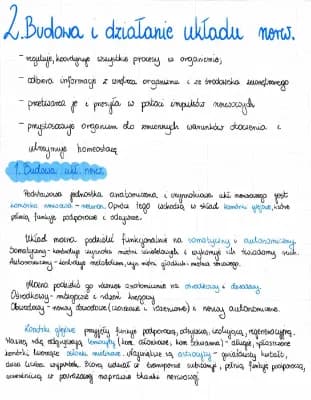 2. Budowa i działanie układu nerw.
- reguluje, koordynuje wszystkie procesy w organizmie,
- odbiera informacje z wnętrza organizmu i ze środowiska zewnętrznego
- przetwarza je i przesyła w postaci impulsów nerwowych
- przystosowuje organizm do zmiennych warunków otoczenia i
utrzymuje homeostazę
1. Budowa ukł. nerw.
Podstawową jednostką anatomiczną i czynnościową ukł. nerwowego jest
komórka nerwowa - neuron. Oprócz tego wchodzą w skład komórki glejowe, które
pełnią funkcje podporowe i odżywcze.
Układ można podzielić funkcjonalnie na somatyczny i autonomiczny
Somatyczny - kontroluje mięśni szkieletowych i wykonuje ich świadomy ruch.
Autonomiczny - kontroluje metabolizm, mięśni gładkich i mięśnia sercowego.
Można podzielić go również anatomicznie na ośrodkowy i obwodowy.
Ośrodkowy - mózgowie i rdzeń kręgowy
Obwodowy - nerwy obwodowe (czaszkowe i rdzeniowe) i nerwy autonomiczne.
Komórki glejowe przyjęły funkcję podporową, odżywczą, izolacyjną, regeneracyjną.
komórki tworzące osłonki mielinowe. Największe są astrocyty - gwiaździsty kształt,
dużo wypustek. Biorą udział w transporcie substancji, pełnią funkcję podporową,
uczestniczą w naprawie tkanki nerwowej